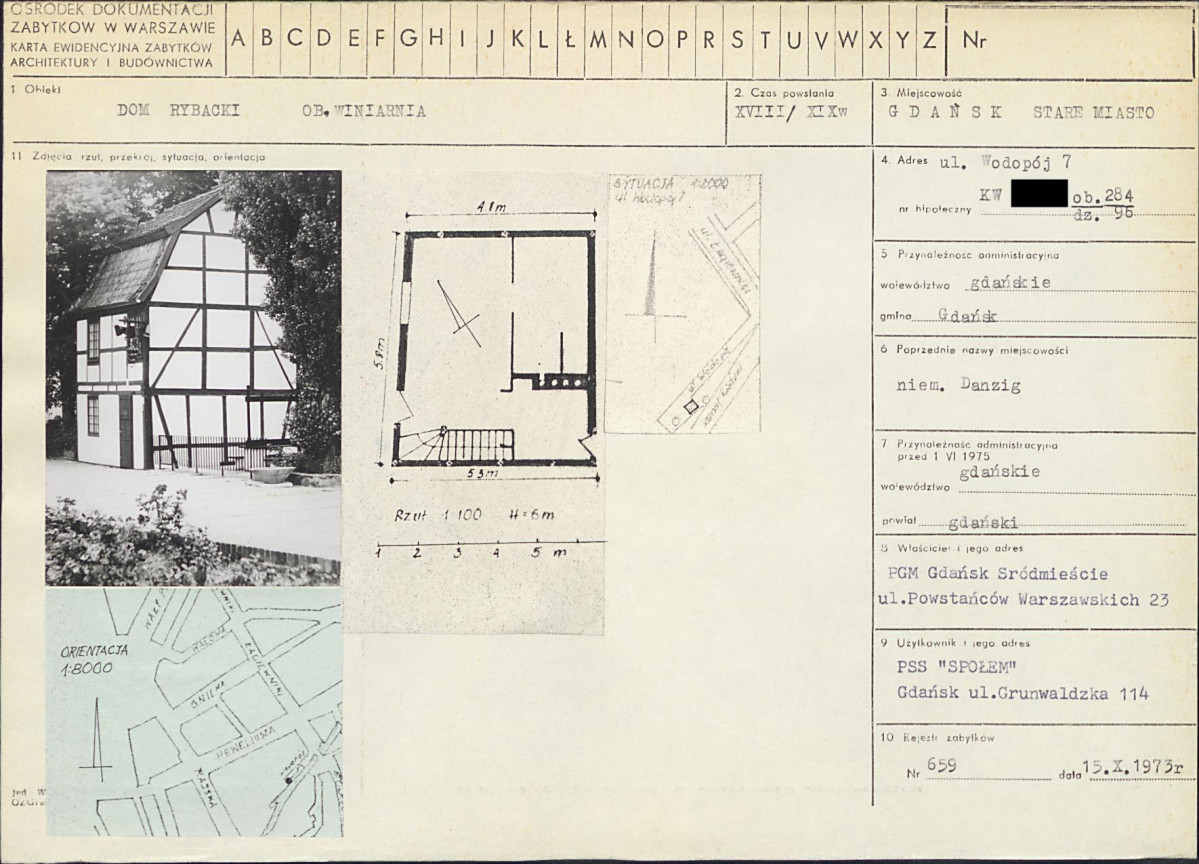 OŚRODEK DOKUMENTACJI
ZABYTKÓW W WARSZAWIE
KARTA EWIDENCYJNA ZABYTKÓW
ARCHITEKTURY I BUDOWNICTWA
A B C D E F G H I J K L Ł M N O P R S T U V W X Y Z Nr
1 Obiekt
DOM RYBACKI OB. WINIARNIA
2. Czas powstania
XVIII/ XIXw
3. Miejscowość
GDAŃSK STARE MIASTO
11 Zdjęcia rzut, przekrój, sytuacja, orientacja
4. Adres ul. Wodopój 7
KW ob. 284
nr hipoteczny dz. 96
5 Przynależność administracyjna
województwo gdańskie
gmina Gdańsk
6 Poprzednie nazwy miejscowości
niem. Danzig
7 Przynależność administracyjna
przed 1 VI 1975
gdańskie
województwo
powiat gdański
8 Właściciel i jego adres
PGM Gdańsk Sródmieście
ul.Powstańców Warszawskich 23
9 Użytkownik i jego adres
PSS "SPOŁEM"
Gdańsk ul.Grunwaldzka 114
10 Rejestr zabytków
Nr 659 data 15.X.1973r
4.8m
5.8m
5.3m
Rzut 1:100 H=6m
1 2 3 4 5 m
SYTUACJA 1:2000
ul. Wodopój
ul. Wodopój
ORIENTACJA
1:8000
WAŁOWA
ŁAGIEWNIKI
GNILNA
HEWELIUSZA
RAJSKA